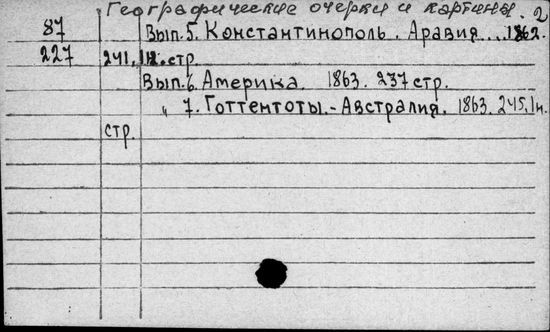 Географические очерки и картины. 2
87 Вып. 5. Константинополь. Аравия... 1862.
227 241, 12. стр.
Вып. 6. Америка. 1863. 237 стр.
" 7. Готтентоты.-Австралия. 1863. 245, 1 н.
стр.